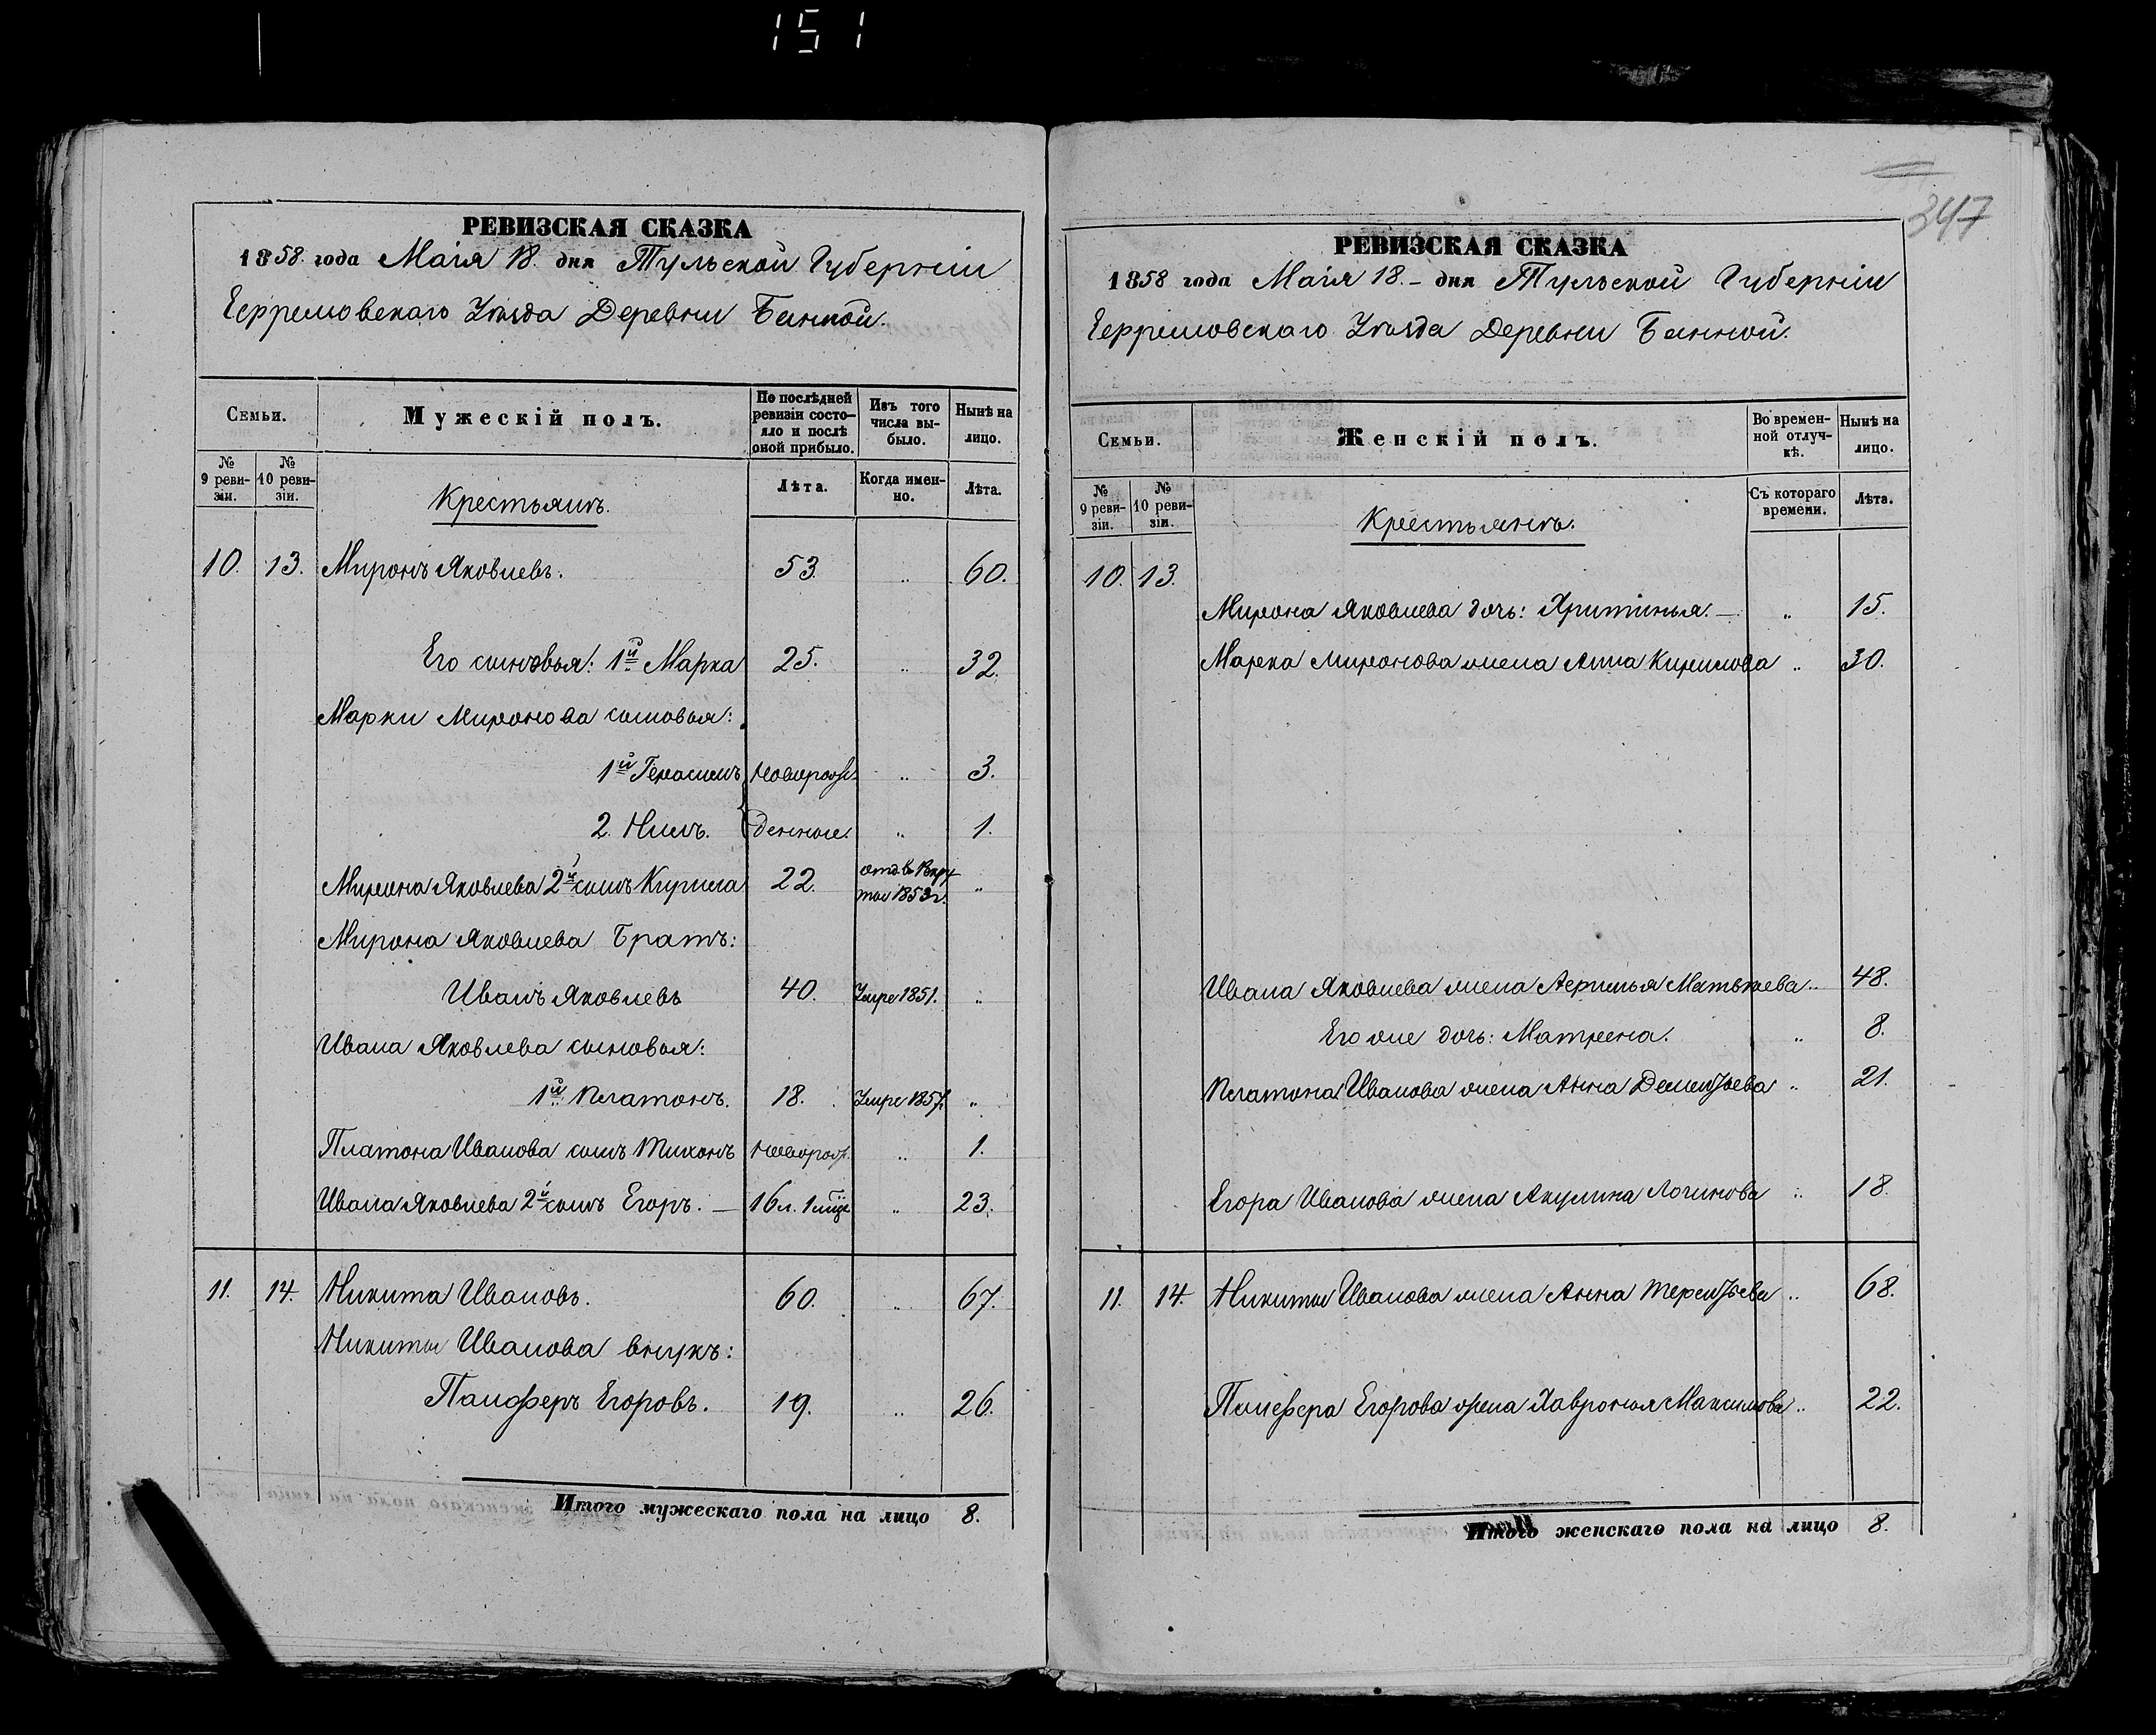 151
РЕВИЗСКАЯ СКАЗКА
1858 года Маія 18. дня Тульской Губерніи
Ефремовскаго Уѣзда Деревни Банной.
Семьи.
Мужескій полъ.
По послѣдней ревизіи состояло и послѣ оной прибыло.
Изъ того числа выбыло.
Нынѣ на лицо.
№ 9 ревизіи.
№ 10 ревизіи.
Лѣта.
Когда именно.
Лѣта.
Крестьянъ.
10. 13. Миронъ Яковлевъ. 53. „ 60.
Его сыновья: 1й Марка 25. „ 32.
Марки Миронова сыновья:
1й Герасимъ новорож- „ 3.
2. Нилъ. денные. „ 1.
Мирона Яковлева 2й сынъ Кирила 22. отд. въ Рекруты 1853 г. „
Мирона Яковлева Братъ:
Иванъ Яковлевъ 40. Умре 1851. „
Ивана Яковлева сыновья:
1й Платонъ. 18. Умре 1857. „
Платона Иванова сынъ Тихонъ новорож. „ 1.
Ивана Яковлева 2й сынъ Егоръ. — 16 л. 1 мѣс. „ 23.
11. 14. Никита Ивановъ. 60. „ 67.
Никиты Иванова внукъ:
Панферъ Егоровъ. 19. „ 26.
Итого мужескаго пола на лицо 8.
347
РЕВИЗСКАЯ СКАЗКА
1858 года Маія 18. – дня Тульской Губерніи
Ефремовскаго Уѣзда Деревни Банной.
Семьи.
Женскій полъ.
Во временной отлучкѣ.
Нынѣ на лицо.
№ 9 ревизіи.
№ 10 ревизіи.
Съ котораго времени.
Лѣта.
Крестьянъ.
10. 13.
Мирона Яковлева дочь: Хритинья. — „ 15.
Марка Миронова жена Анна Кирилова „ 30.
Ивана Яковлева жена Афимья Матвѣева „ 48.
Его же дочь: Матрена. „ 8.
Платона Иванова жена Анна Дементьева „ 21.
Егора Иванова жена Акулина Логинова „ 18.
11. 14. Никиты Иванова жена Анна Терентьева „ 68.
Панфера Егорова жена Хавронья Максимова „ 22.
Итого женскаго пола на лицо 8.